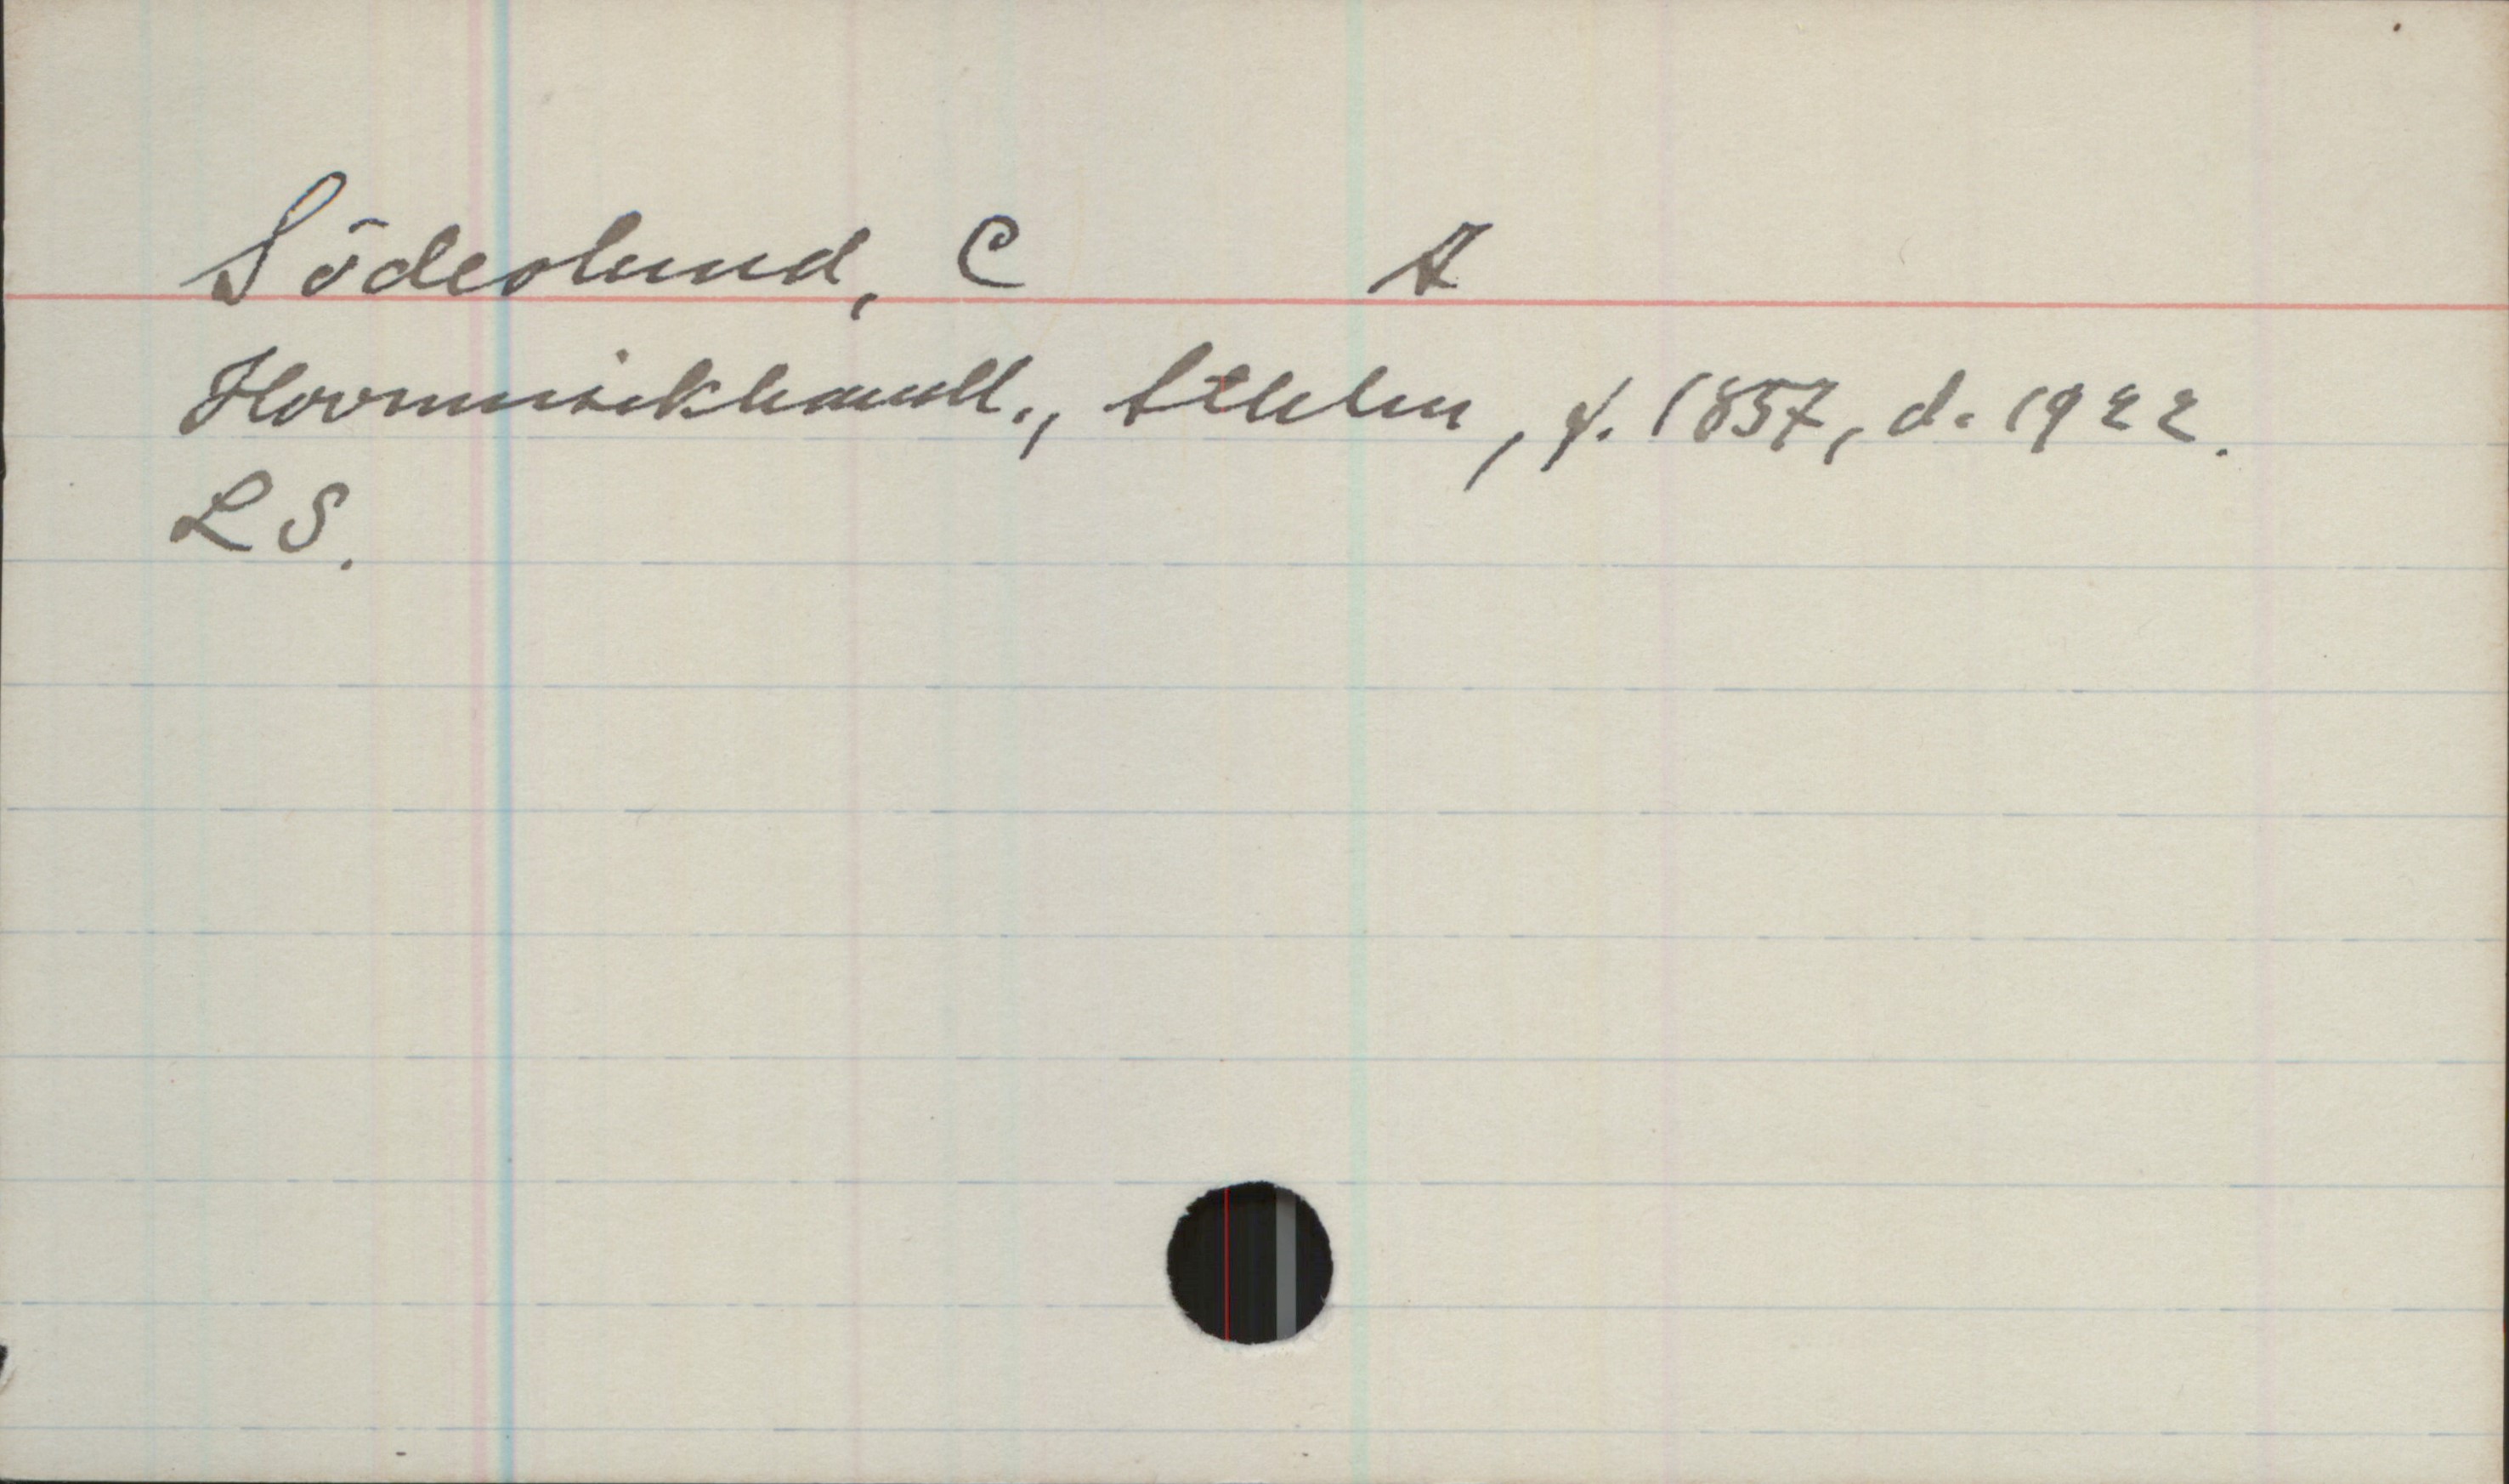 Söderlund, C A
Hovmusikhandl., Sthlm, f. 1857, d. 1922.
LS.